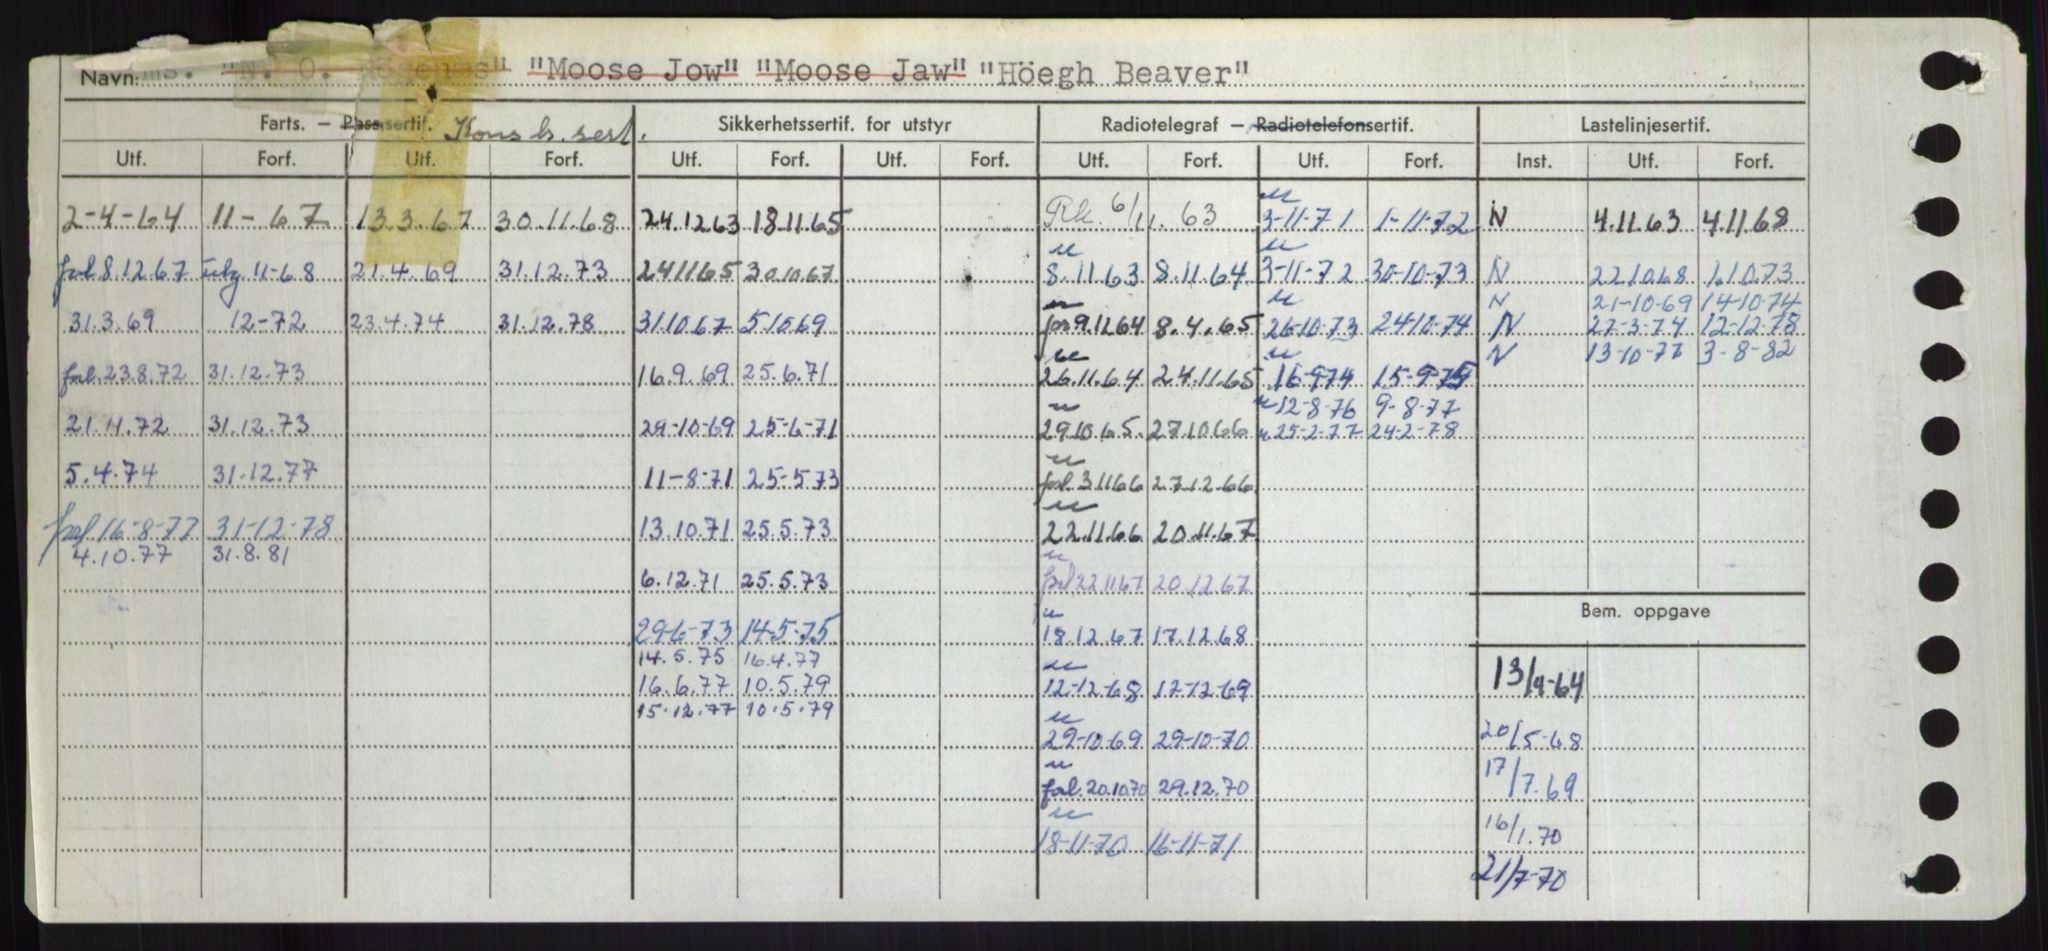 Navn: ms. "N. O. Rogenæs" "Moose Jow" "Moose Jaw" "Höegh Beaver"
Farts. – Passasertif. Kons b. sert. Sikkerhetssertif. for utstyr Radiotelegraf – Radiotelefonsertif. Lastelinjesertif.
Utf. Forf. Utf. Forf. Utf. Forf. Utf. Forf. Utf. Forf. Utf. Forf. Inst. Utf. Forf.
2-4-64 11-67 13.3.67 30.11.68 24.12.63 18.11.65 Rk. 6/11.63 3-11-71 1-11-72 N 4.11.63 4.11.68
forl. 8.12.67 11-68 21.4.69 31.12.73 24.11.65 30.10.67 8.11.63 8.11.64 3-11-72 30-10-73 N 22.10.68 1.10.73
N 21-10-69 14-10-74
31.3.69 12-72 23.4.74 31.12.78 31.10.67 5.10.69 9.12.64 8.4.65 26-10-73 24-10-74 N 27-3-74 12-12-78
N 13-10-77 3-8-82
forl. 23.8.72 31.12.73 16.9.69 25.6.71 26.11.64 24.11.65 16-9-74 15-9-75
12-8-76 9-8-77
21.11.72 31.12.73 29-10-69 25-6-71 29.10.65. 27.10.66 25-2-77 24-2-78
5.4.74 31.12.77 11-8-71 25-5-73 forl. 3.11.66 27.12.66
forl. 16-8-77 31-12-78 13.10.71 25.5.73 22.11.66 20.11.67
4.10.77 31.8.81
6.12.71 25.5.73 forl 22.11.67 20.12.67
Bem. oppgave
29-6-73 14-5-75 18.12.67 17.12.68
14.5.75 16.4.77
16.6.77 10.5.79 12-12-68 12-12-69 13/4-64
15.12.77 10.5.79
29-10-69 29-10-70 20/5-68
forl. 20.10.70 29.12.70 17/7.69
18-11-70 16-11-71 16/1.70
21/7-70